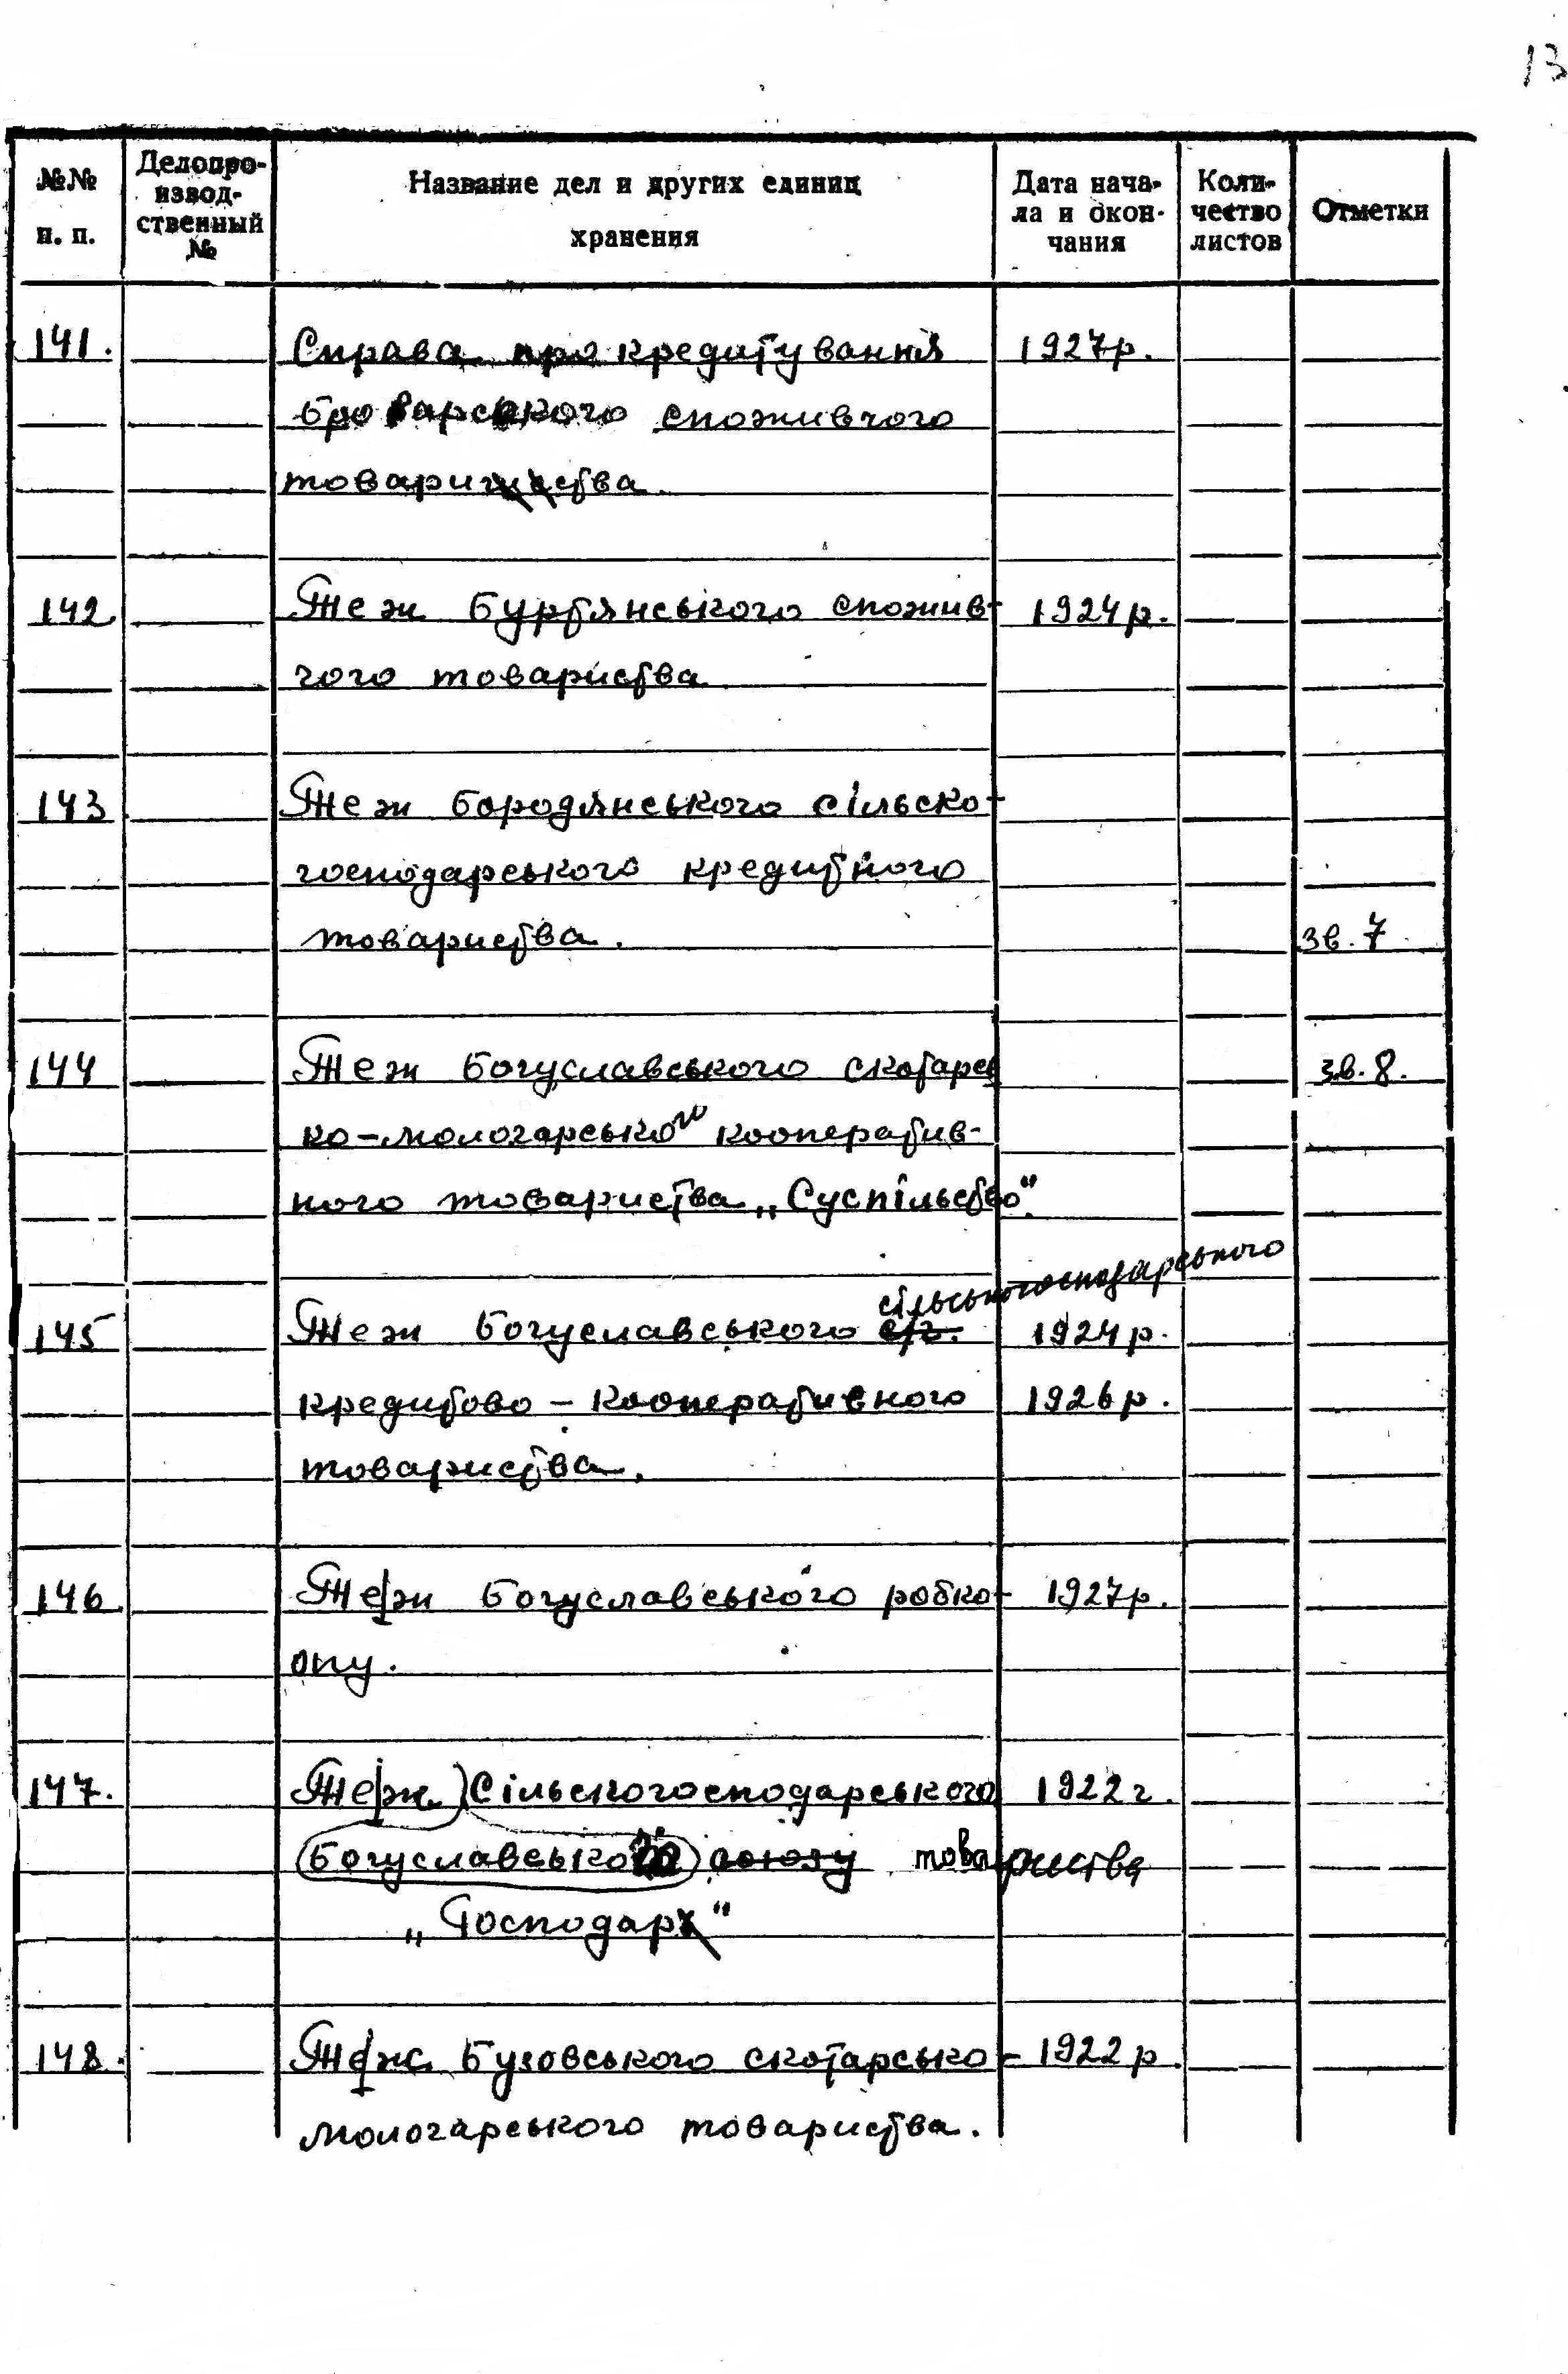 13
№№ п. п.
Делопро-
извод-
ственный
№
Название дел и других единиц
хранения
Дата нача-
ла и окон-
чания
Коли-
чество
листов
Отметки
141. Справа про кредитування 1927р.
Броварського споживчого
товариства
142. Теж Буртянського спожив- 1924р.
чого товариства
143 Теж Бородянського сільско-
господарського кредитного
товариства. зв. 7
144 Теж Богуславського скотарсь зв. 8.
ко-молочарського кооператив-
ного товариства „Суспільство“.
сільськогосподарського
145 Теж Богуславського с/г. 1924р.
кредитово-кооперативного 1926р.
товариства.
146 Теж Богуславського робко- 1927р.
опу.
147. Теж Сільскогосподарського 1922г.
Богуславського союзу товариства
„Господар“
148. Теж Бузовського скотарсько- 1922р
молочарського товариства.